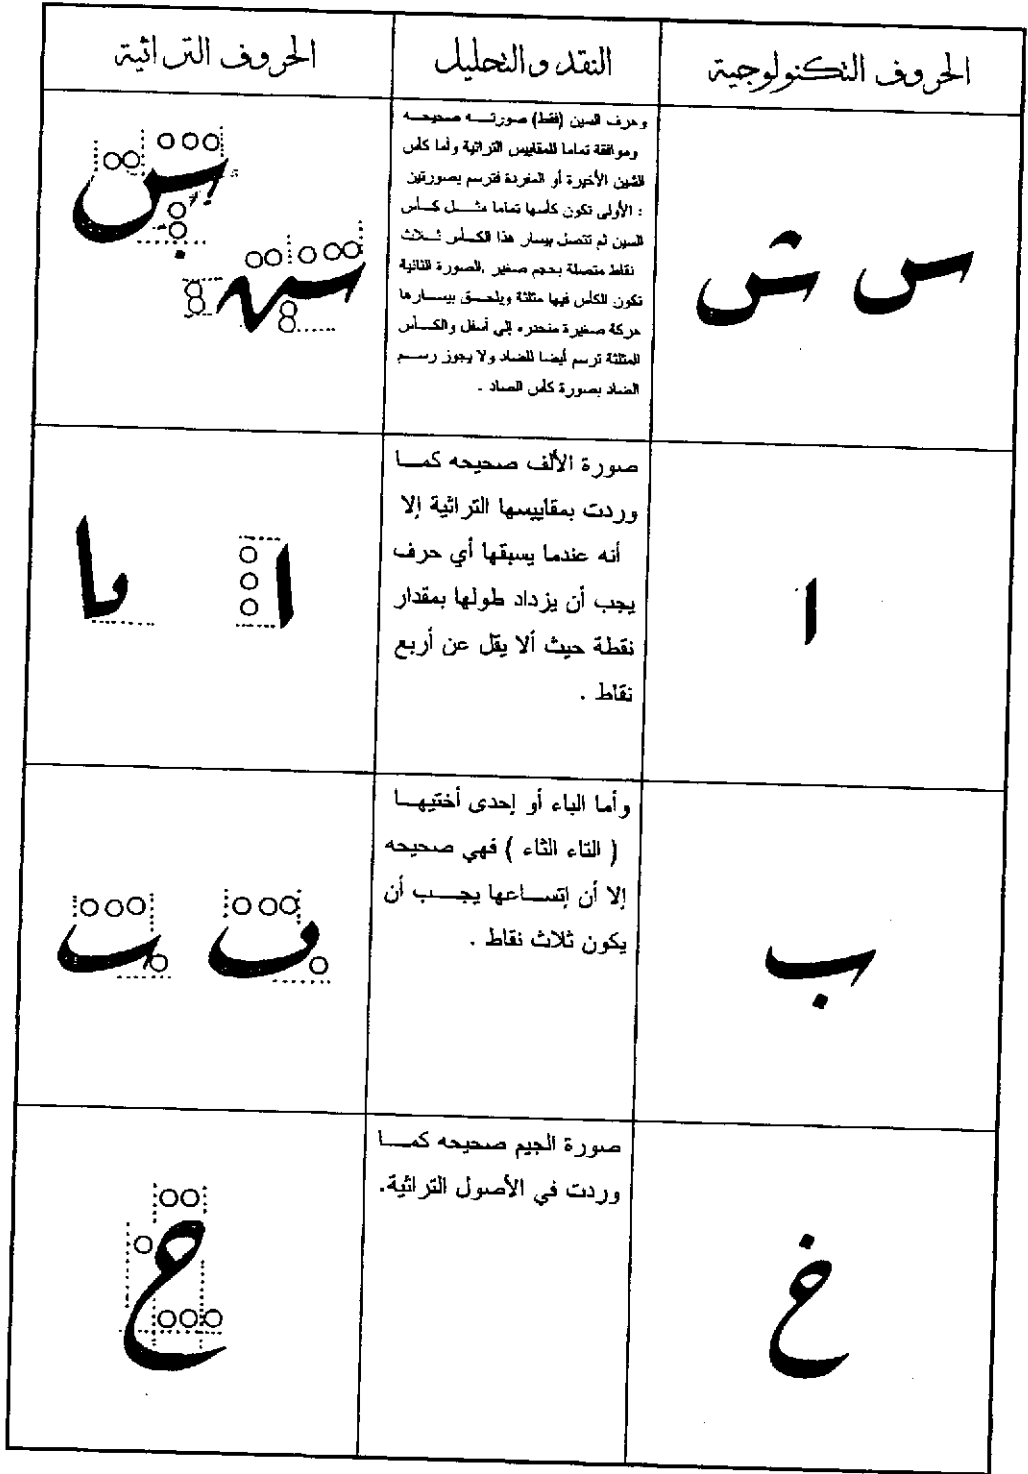 الحروف التكنولوجية
النقد والتحليل
الحروف التراثية
س ش
وحرف السين (فقط) صورتـــه صحيحــه
وموافقة تماما للمقاييس التراثية وأما كأس
الشين الأخيرة أو المفردة فترسم بصورتين
: الأولى تكون كأسها تماما مثــل كــأس
السين ثم تتصل بيسار هذا الكــأس ثــلاث
نقاط متصلة بحجم صغير .الصورة الثانية
تكون الكأس فيها مثلثة ويلحــق بيســارها
حركة صغيرة منحدره إلى أسفل والكــأس
المثلثة ترسم أيضا للضاد ولا يجوز رســم
الضاد بصورة كأس الصاد .
ا
صورة الألف صحيحه كمـــا
وردت بمقاييسها التراثية إلا
أنه عندما يسبقها أي حرف
يجب أن يزداد طولها بمقدار
نقطة حيث ألا يقل عن أربع
نقاط .
ا
ب
وأما الباء أو إحدى أختيهــا
( التاء الثاء ) فهي صحيحه
إلا أن إتســاعها يجـــب أن
يكون ثلاث نقاط .
خ
صورة الجيم صحيحه كمـــا
وردت في الأصول التراثية.
ح